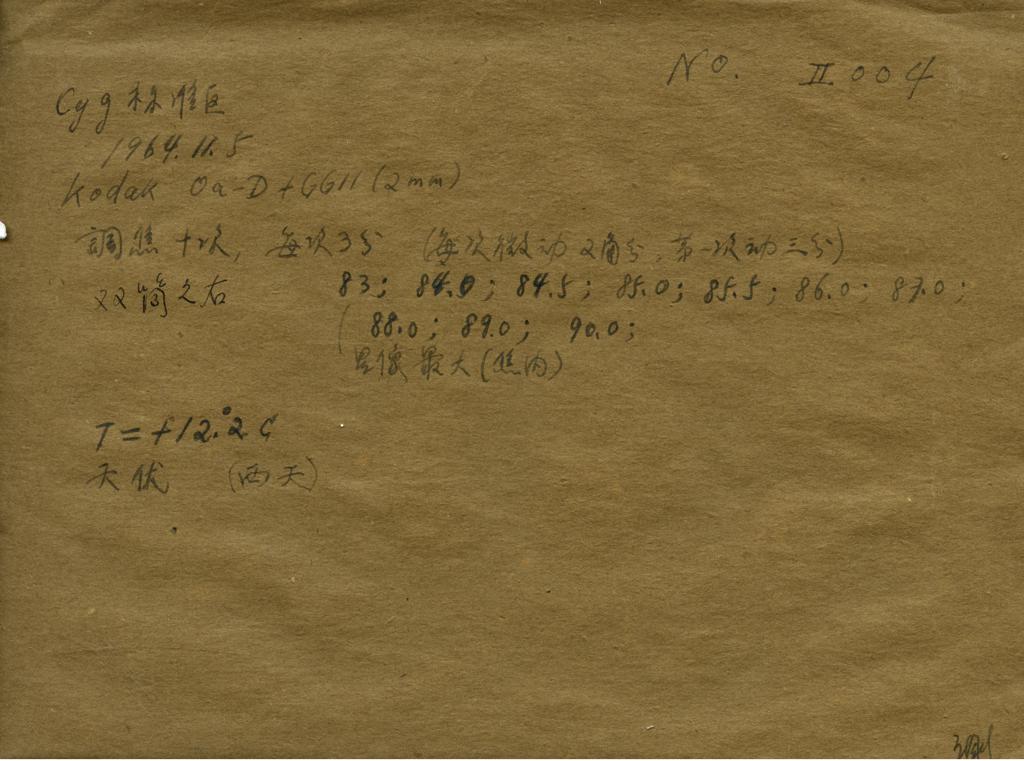 No. II 004
Cyg 标准区
1964.11.5
Kodak Oa-D+GG11(2mm)
調焦十次, 每次3分 (每次微动2角分,第一次动三分)
双筒之右 83; 84.0; 84.5; 85.0; 85.5; 86.0; 87.0;
88.0; 89.0; 90.0;
星像最大(焦内)
T=+12.°2 C
天优 (西天)